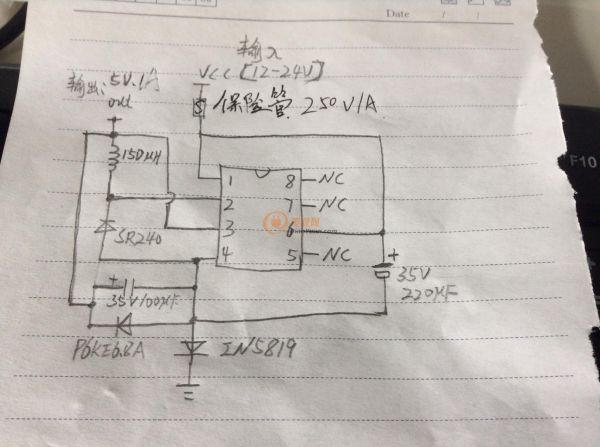 Date / /
输入
VCC [12-24V]
输出: 5V.1A
out
保险管 250V/A
150μH
1 8 NC
2 7 NC
3 6
4 5 NC
SR240
+
35V
220μF
+
35V100μF
P6KE6.8A
IN5819
F10